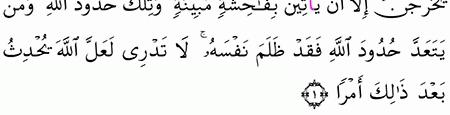 يَخْرُجْنَ إِلَّا أَن يَأْتِينَ بِفَـٰحِشَةٍ مُّبَيِّنَةٍ وَتِلْكَ حُدُودُ ٱللَّهِ وَمَن
يَتَعَدَّ حُدُودَ ٱللَّهِ فَقَدْ ظَلَمَ نَفْسَهُۥ ۚ لَا تَدْرِى لَعَلَّ ٱللَّهَ يُحْدِثُ
بَعْدَ ذَٰلِكَ أَمْرًا ﴿١﴾